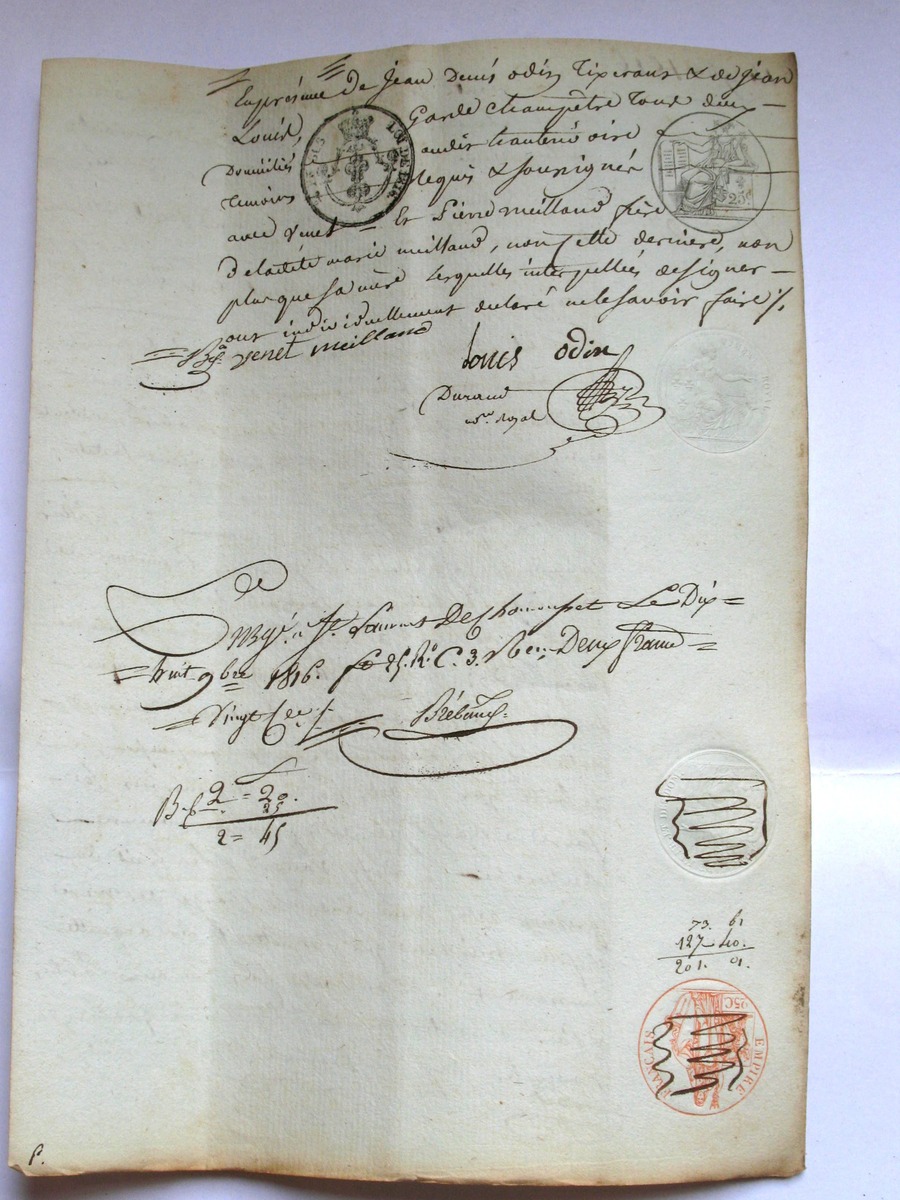 En présence de jean Denis odin Tixerant & de jean
Louis, Garde champêtre tous deux
Domiciliés audit
Temoins requis & soussignés
avec venet = Et pierre meilland frère
de laditte marie meilland, non cette derniere, non
plus que sa mère lesquelles interpellées de signer
ont individuellement declaré ne le savoir faire ·/.
venet meilland
Louis odin
Durand
no.re royal
LOI DE 1816
25c
Enrgé. a St. Laurent De Chamousset Le Dix=
=huit 9bre 1816. fo 25. Ro. C. 3. Deux francs
=Vingt Ce
B. f 2 = 20.
25
2 = 45
73. 61
127 40.
201. 01.
25C
EMPIRE
FRANÇAIS
P.